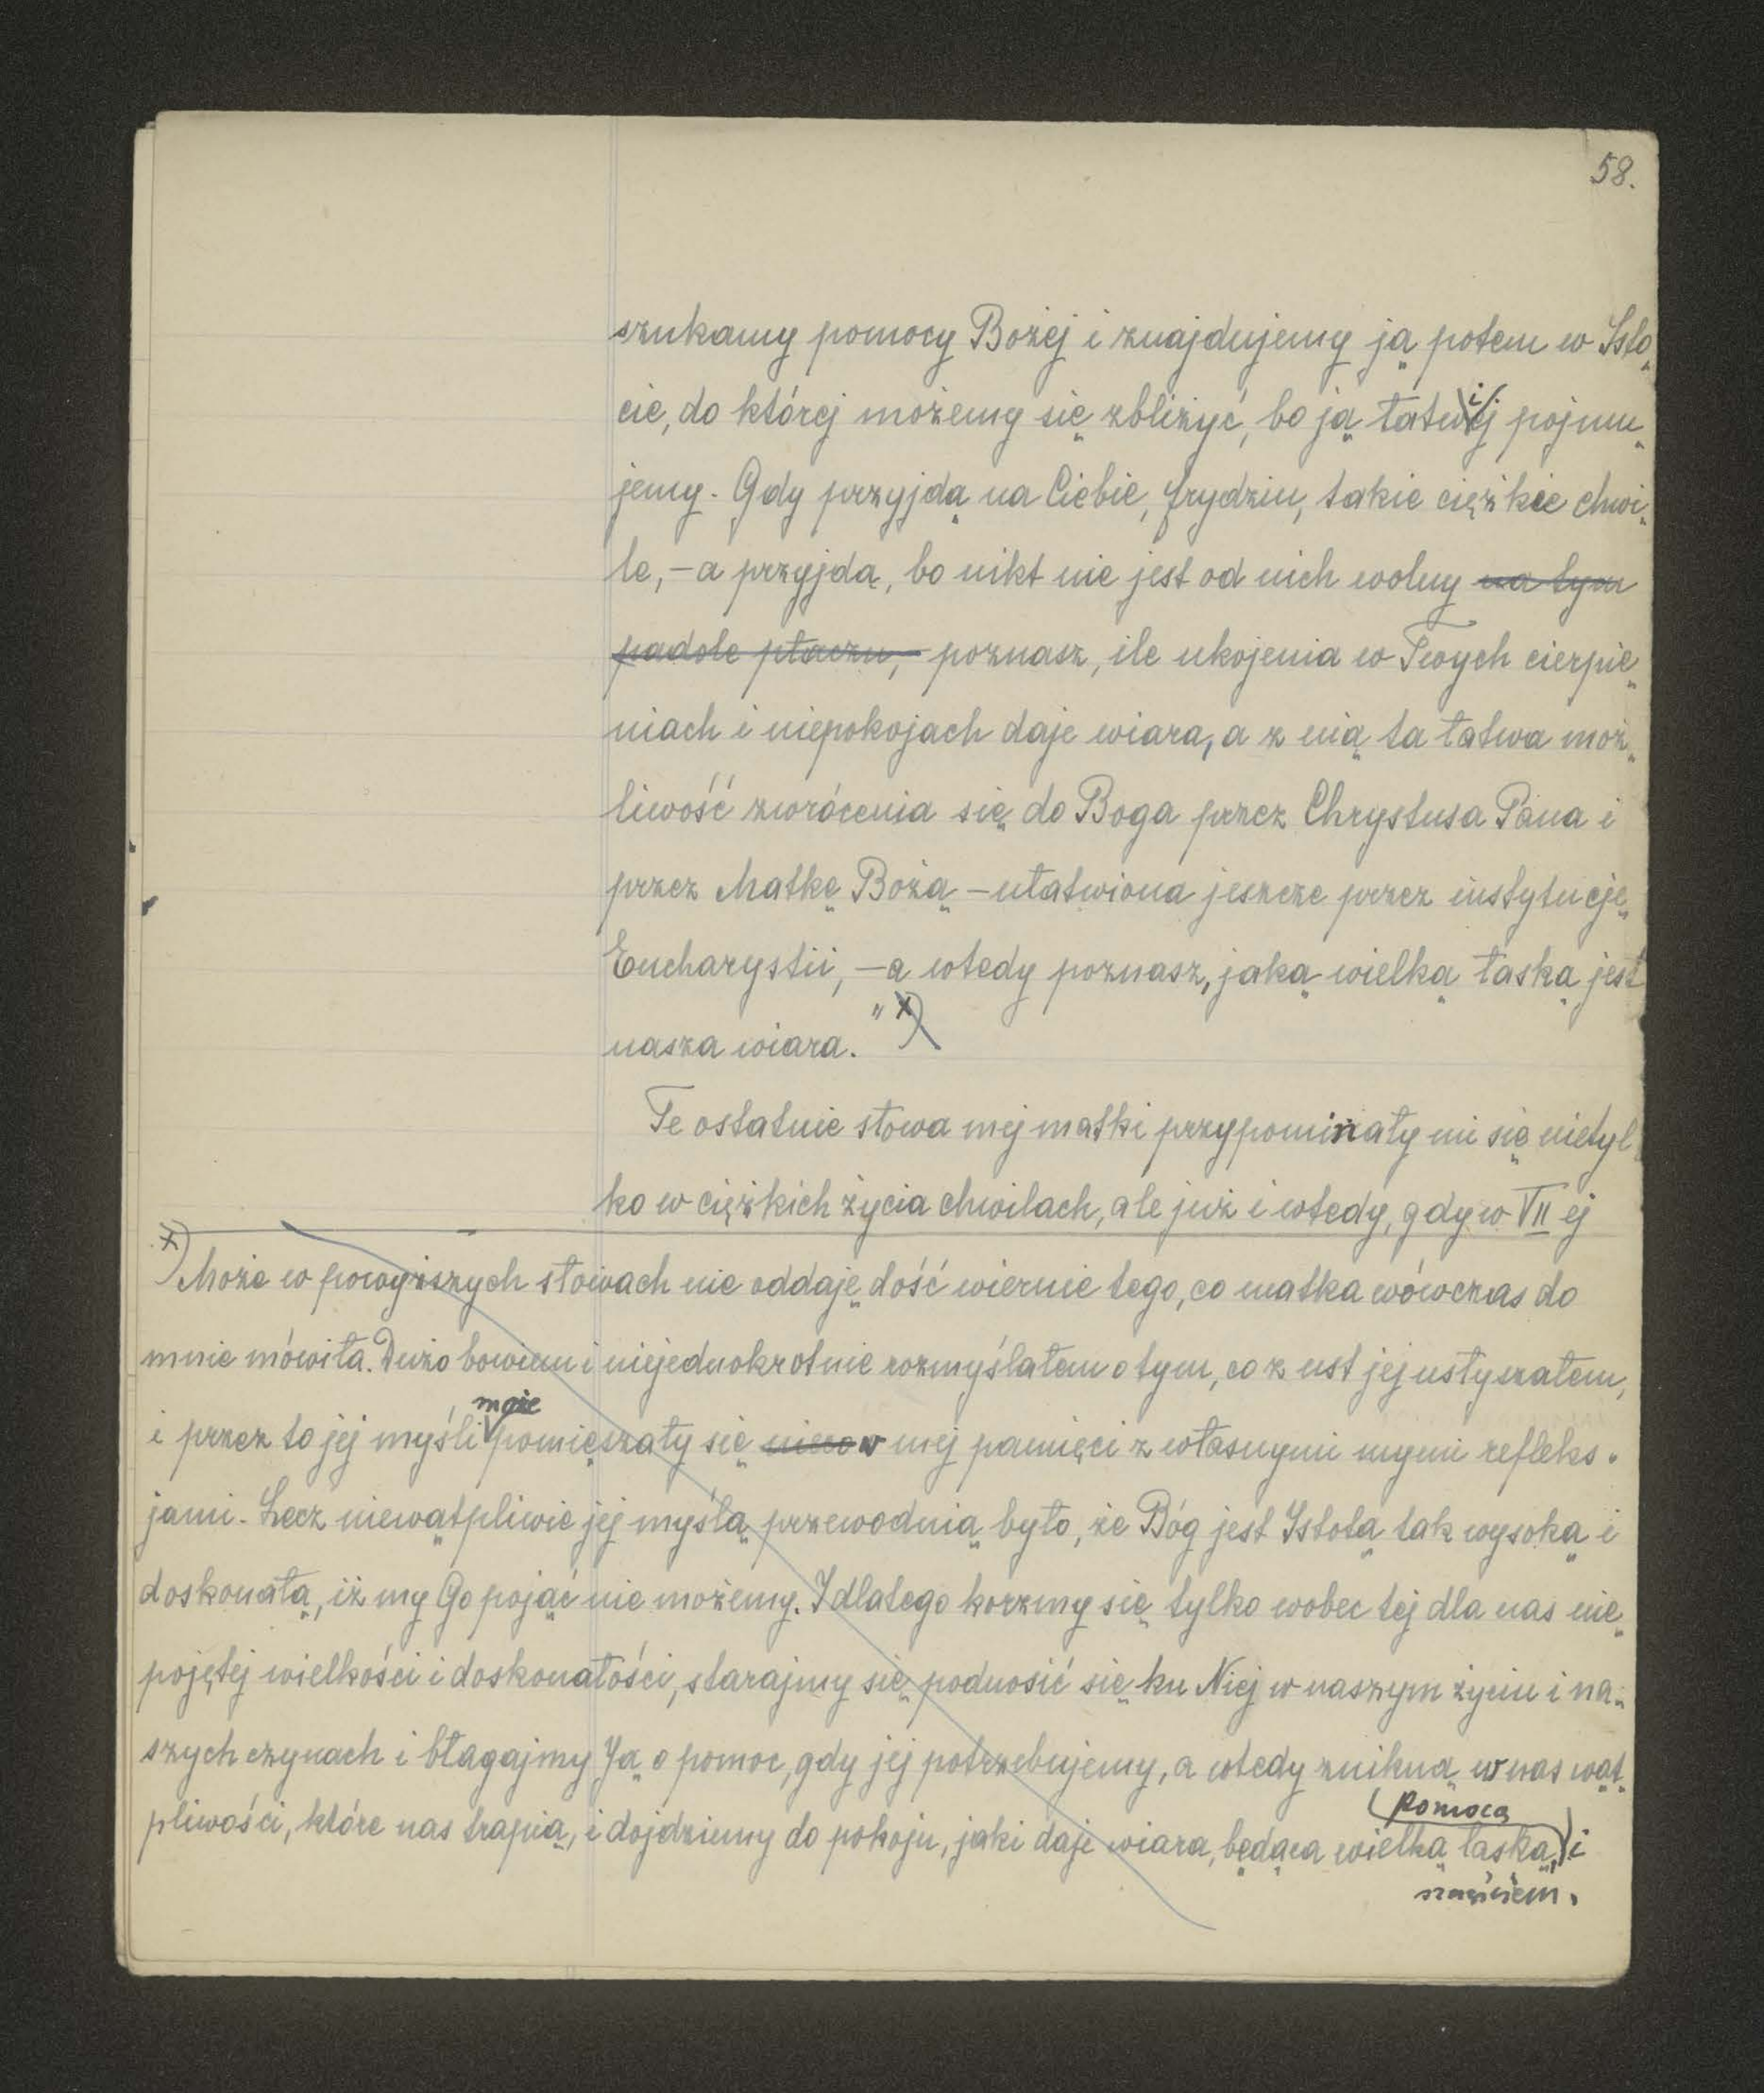 58.
szukamy pomocy Bożej i znajdujemy ją potem w Isto„
cie, do której możemy się zbliżyć, bo ją łatwiej pojmu„
jemy. Gdy przyjdą na Ciebie, Frydziu, takie ciężkie chwi„
le, – a przyjdą, bo nikt nie jest od nich wolny na tym
padole płaczu, – poznasz, ile ukojenia w Twych cierpie„
niach i niepokojach daje wiara, a z nią ta łatwa moż„
liwość zwrócenia się do Boga przez Chrystusa Pana i
przez Matkę Bożą – ułatwiona jeszcze przez instytucję
Eucharystii, – a wtedy poznasz, jaką wielką łaską jest
nasza wiara." x)
Te ostatnie słowa mej matki przypominały mi się nietyl
ko w ciężkich życia chwilach, ale już i wtedy, gdy w VII ej
x) Może w powyższych słowach nie oddaję dość wiernie tego, co matka wówczas do
mnie mówiła. Dużo bowiem i niejednokrotnie rozmyślałem o tym, co z ust jej usłyszałem,
i przez to jej myśli może pomięszały się nieco w mej pamięci z własnymi mymi refleks„
jami. Lecz niewątpliwie jej myślą przewodnią było, że Bóg jest Istotą tak wysoką i
doskonałą, iż my Go pojąć nie możemy. I dlatego korzmy się tylko wobec tej dla nas nie„
pojętej wielkości i doskonałości, starajmy się podnosić się ku Niej w naszym życiu i na„
szych czynach i błagajmy Ją o pomoc, gdy jej potrzebujemy, a wtedy znikną w nas wąt„
pliwości, które nas trapią, i dojdziemy do pokoju, jaki daje wiara, będąca wielką łaską, pomocą i
szczęściem.